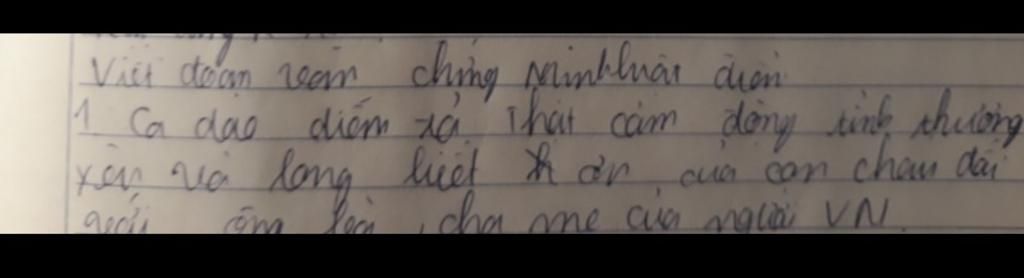 Viết đoạn văn chứng minh luận điểm
1. Ca dao diễm xả thật cảm động tình thương
yêu và lòng biết ơn của con cháu đối
với ông bà, cha mẹ của người VN.